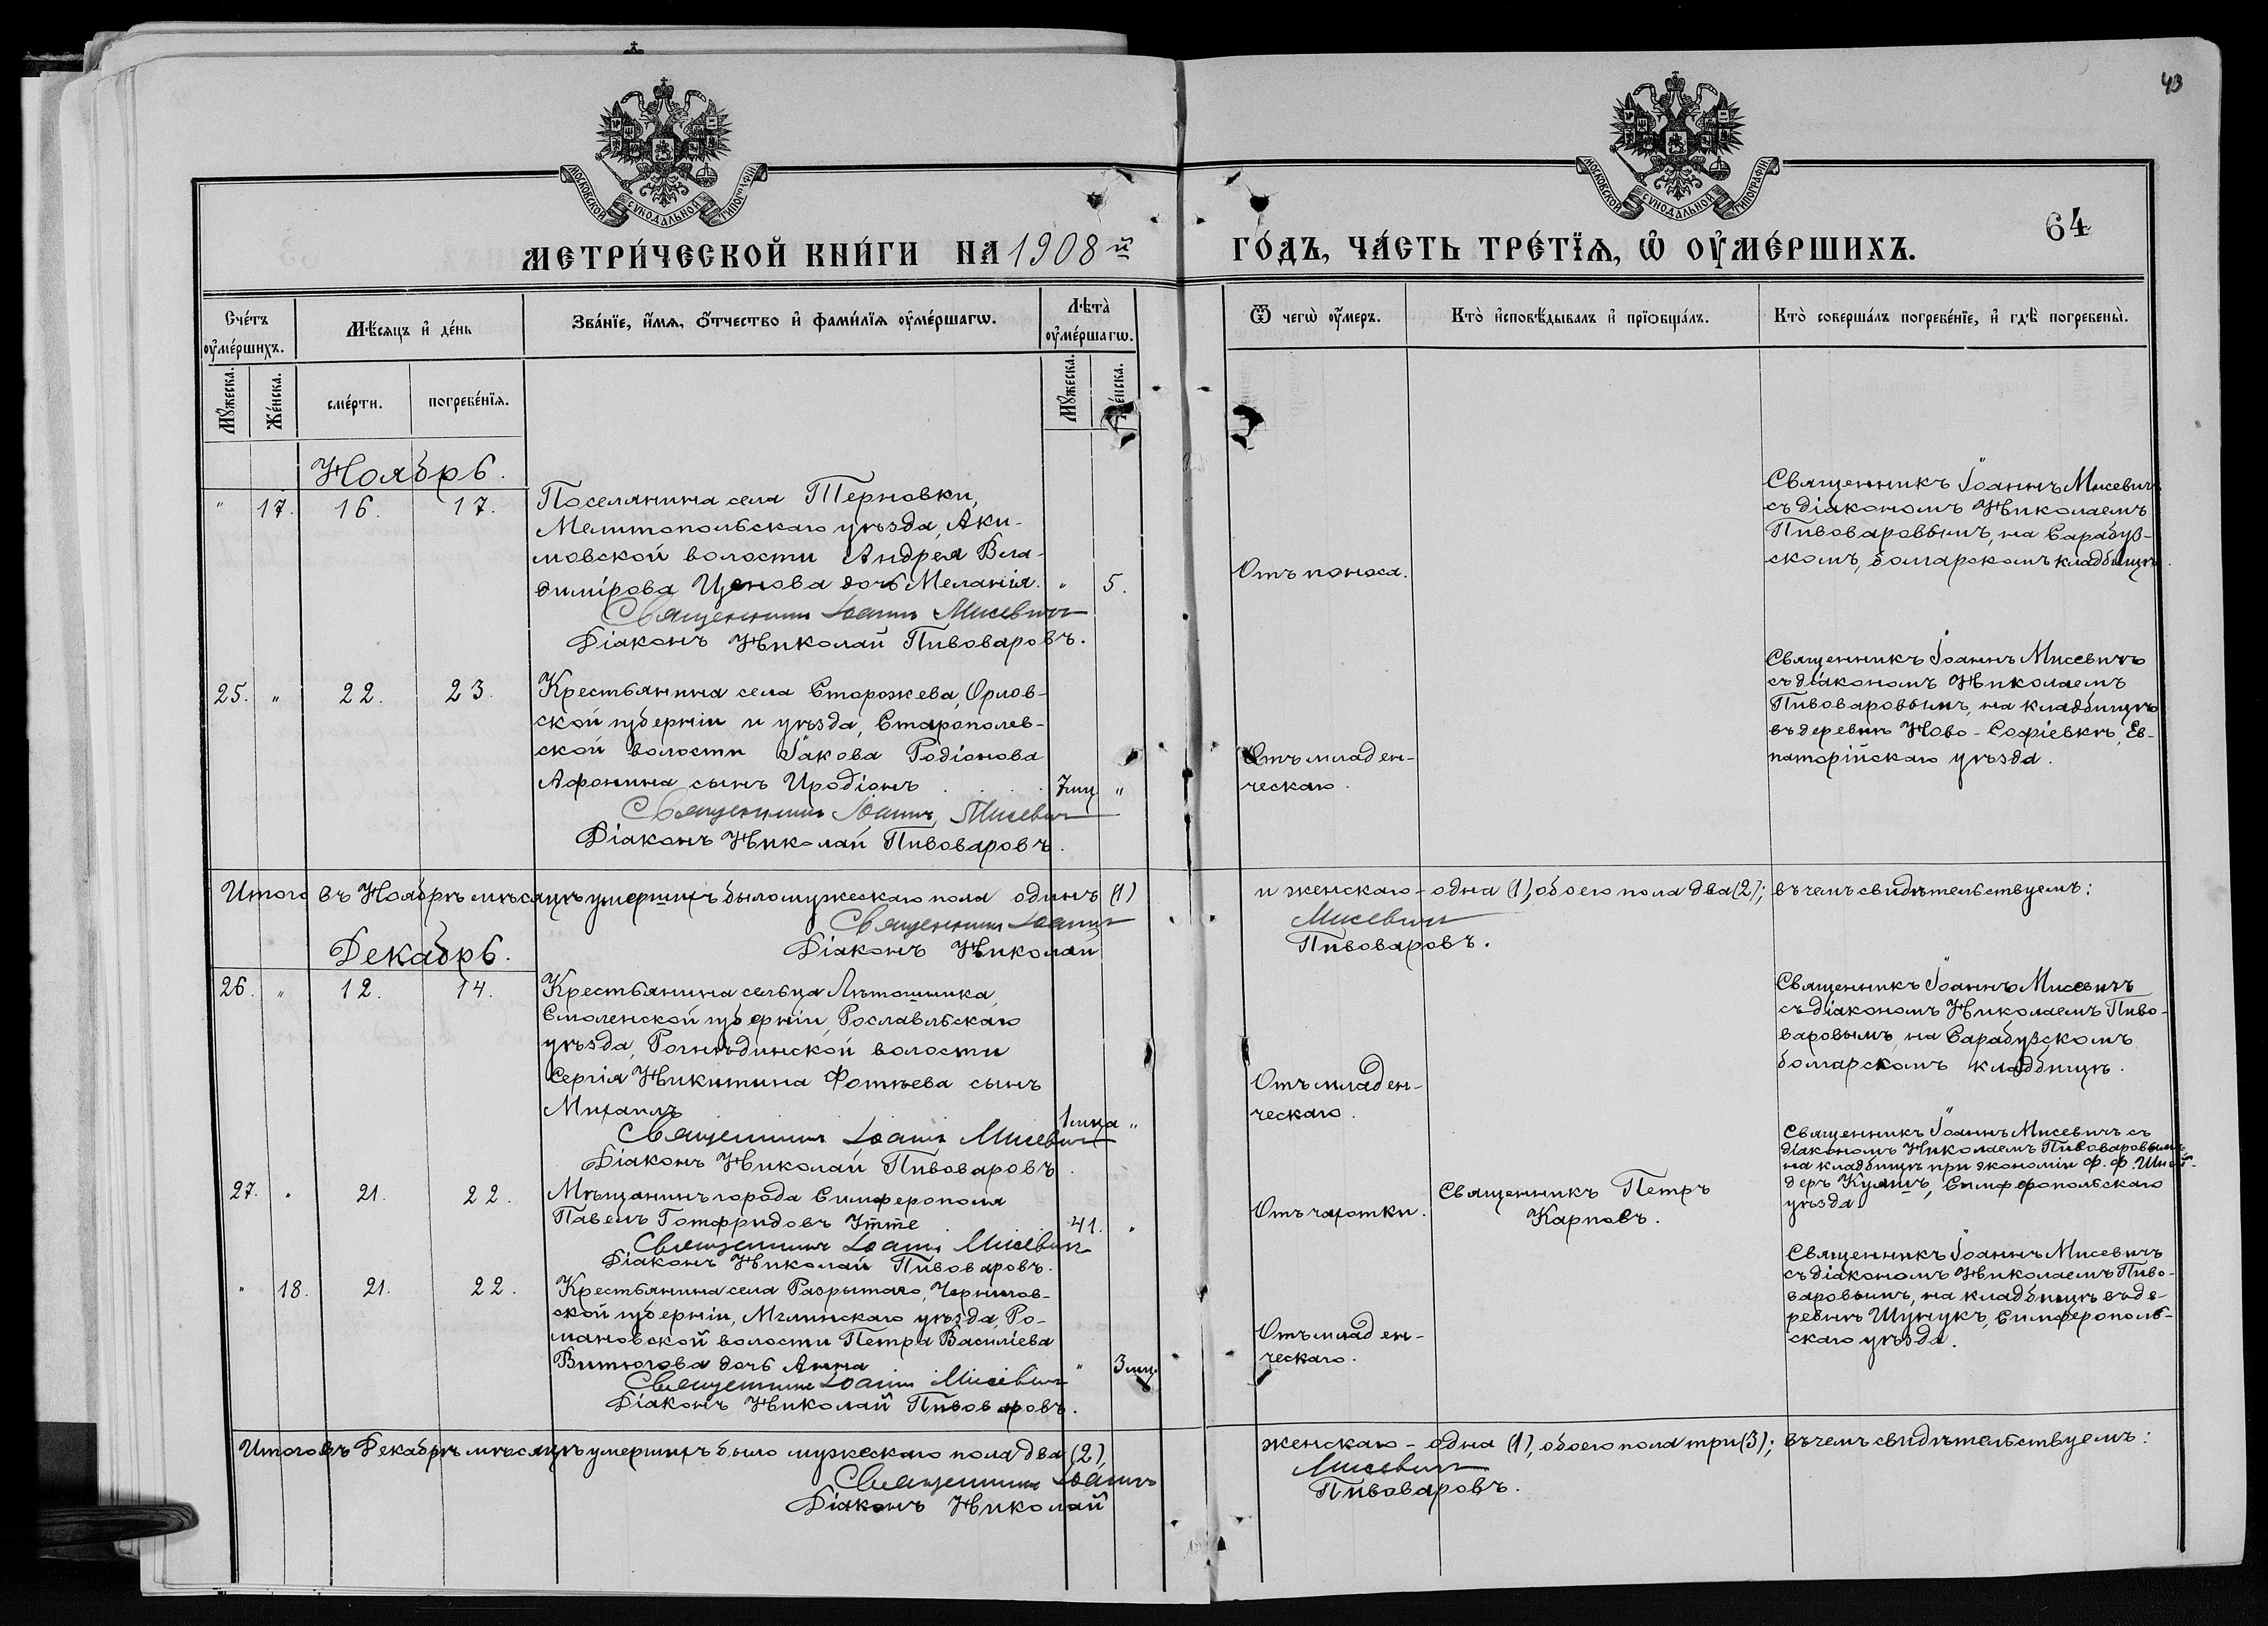 43
МОСКОВСКОЙ СУНОДАЛЬНОЙ ТИПОГРАФІИ
МОСКОВСКОЙ СУНОДАЛЬНОЙ ТИПОГРАФІИ
64
МЕТРИ́ЧЕСКОЙ КНИ́ГИ НА 1908й
ГО́ДЪ, ЧА́СТЬ ТРЕ́ТЇѦ, Ѡ҆ ОУ҆МЕ́РШИХЪ.
Сче́тъ оу҆ме́ршихъ.
Мѣ́сяцъ и҆ де́нь
Зва́нїе, и҆́мѧ, ѻ҆́тчество и҆ фами́лїѧ оу҆ме́ршагѡ.
Лѣта̀ оу҆ме́ршагѡ.
Ѿ чегѡ̀ оу҆́меръ.
Кто̀ и҆сповѣ́дывалъ и҆ прїѡбща́лъ.
Кто̀ соверша́лъ погребе́нїе, и҆ гдѣ̀ погребены̀.
Мꙋ́жеска.
Же́нска.
сме́рти.
погребе́нїѧ.
Мꙋ́жеска.
Же́нска.
Ноябрь.
" 17. 16. 17.
Поселянина села Терновки,
Мелитопольскаго уѣзда, Аки-
мовской волости Андрея Вла-
димірова Ценова дочь Меланія. " 5.
Священникъ Іоаннъ Мисевичъ
Діаконъ Николай Пивоваровъ.
Отъ поноса.
Священникъ Іоаннъ Мисевичъ
съ діакономъ Николаемъ
Пивоваровымъ, на Сарабуз-
скомъ, болгарскомъ кладбищѣ.
25. " 22. 23.
Крестьянина села Сторожева, Орлов-
ской губерніи и уѣзда, Старополев-
ской волости Іакова Родіонова
Афонина сынъ Иродіонъ . . . 7 мц. "
Священникъ Іоаннъ Мисевичъ
Діаконъ Николай Пивоваровъ.
Отъ младен-
ческаго.
Священникъ Іоаннъ Мисевичъ
съ діакономъ Николаемъ
Пивоваровымъ, на кладбищѣ
въ деревнѣ Ново-Софіевкѣ, Ев-
паторійскаго уѣзда.
Итого въ Ноябрѣ мѣсяцѣ умершихъ было мужескаго пола одинъ (1)
и женскаго - одна (1), обоего пола два (2); въ чемъ свидѣтельствуемъ:
Священникъ Іоаннъ
Мисевичъ
Діаконъ Николай
Пивоваровъ.
Декабрь.
26. " 12. 14.
Крестьянина сельца
Смоленской губерніи, Рославльскаго
уѣзда, Рогнѣдинской волости
Сергія Никитина Фотѣева сынъ
Михаилъ 1 мца "
Священникъ Іоаннъ Мисевичъ
Діаконъ Николай Пивоваровъ.
Отъ младен-
ческаго.
Священникъ Іоаннъ Мисевичъ
съ діакономъ Николаемъ Пиво-
варовымъ, на Сарабузскомъ
болгарскомъ кладбищѣ.
27. " 21. 22.
Мѣщанинъ города Симферополя
Павелъ Готфридовъ 41. "
Священникъ Іоаннъ Мисевичъ
Діаконъ Николай Пивоваровъ.
Отъ чахотки.
Священникъ Петръ
Карповъ.
Священникъ Іоаннъ Мисевичъ съ
діакономъ Николаемъ Пивоваровымъ,
на кладбищѣ при экономіи Ф. Ф. Шней-
деръ Симферопольскаго
уѣзда.
" 18. 21. 22.
Крестьянина села Разрытаго, Чернигов-
ской губерніи, Мглинскаго уѣзда, Ро-
мановской волости Петра Василіева
Витюгова дочь Анна " 3 мц.
Священникъ Іоаннъ Мисевичъ
Діаконъ Николай Пивоваровъ.
Отъ младен-
ческаго.
Священникъ Іоаннъ Мисевичъ
съ діакономъ Николаемъ Пиво-
варовымъ, на кладбищѣ въ де-
ревнѣ Шунукъ, Симферополь-
скаго уѣзда.
Итого въ Декабрѣ мѣсяцѣ умершихъ было мужескаго пола два (2),
женскаго - одна (1), обоего пола три (3); въ чемъ свидѣтельствуемъ:
Священникъ Іоаннъ
Мисевичъ
Діаконъ Николай
Пивоваровъ.